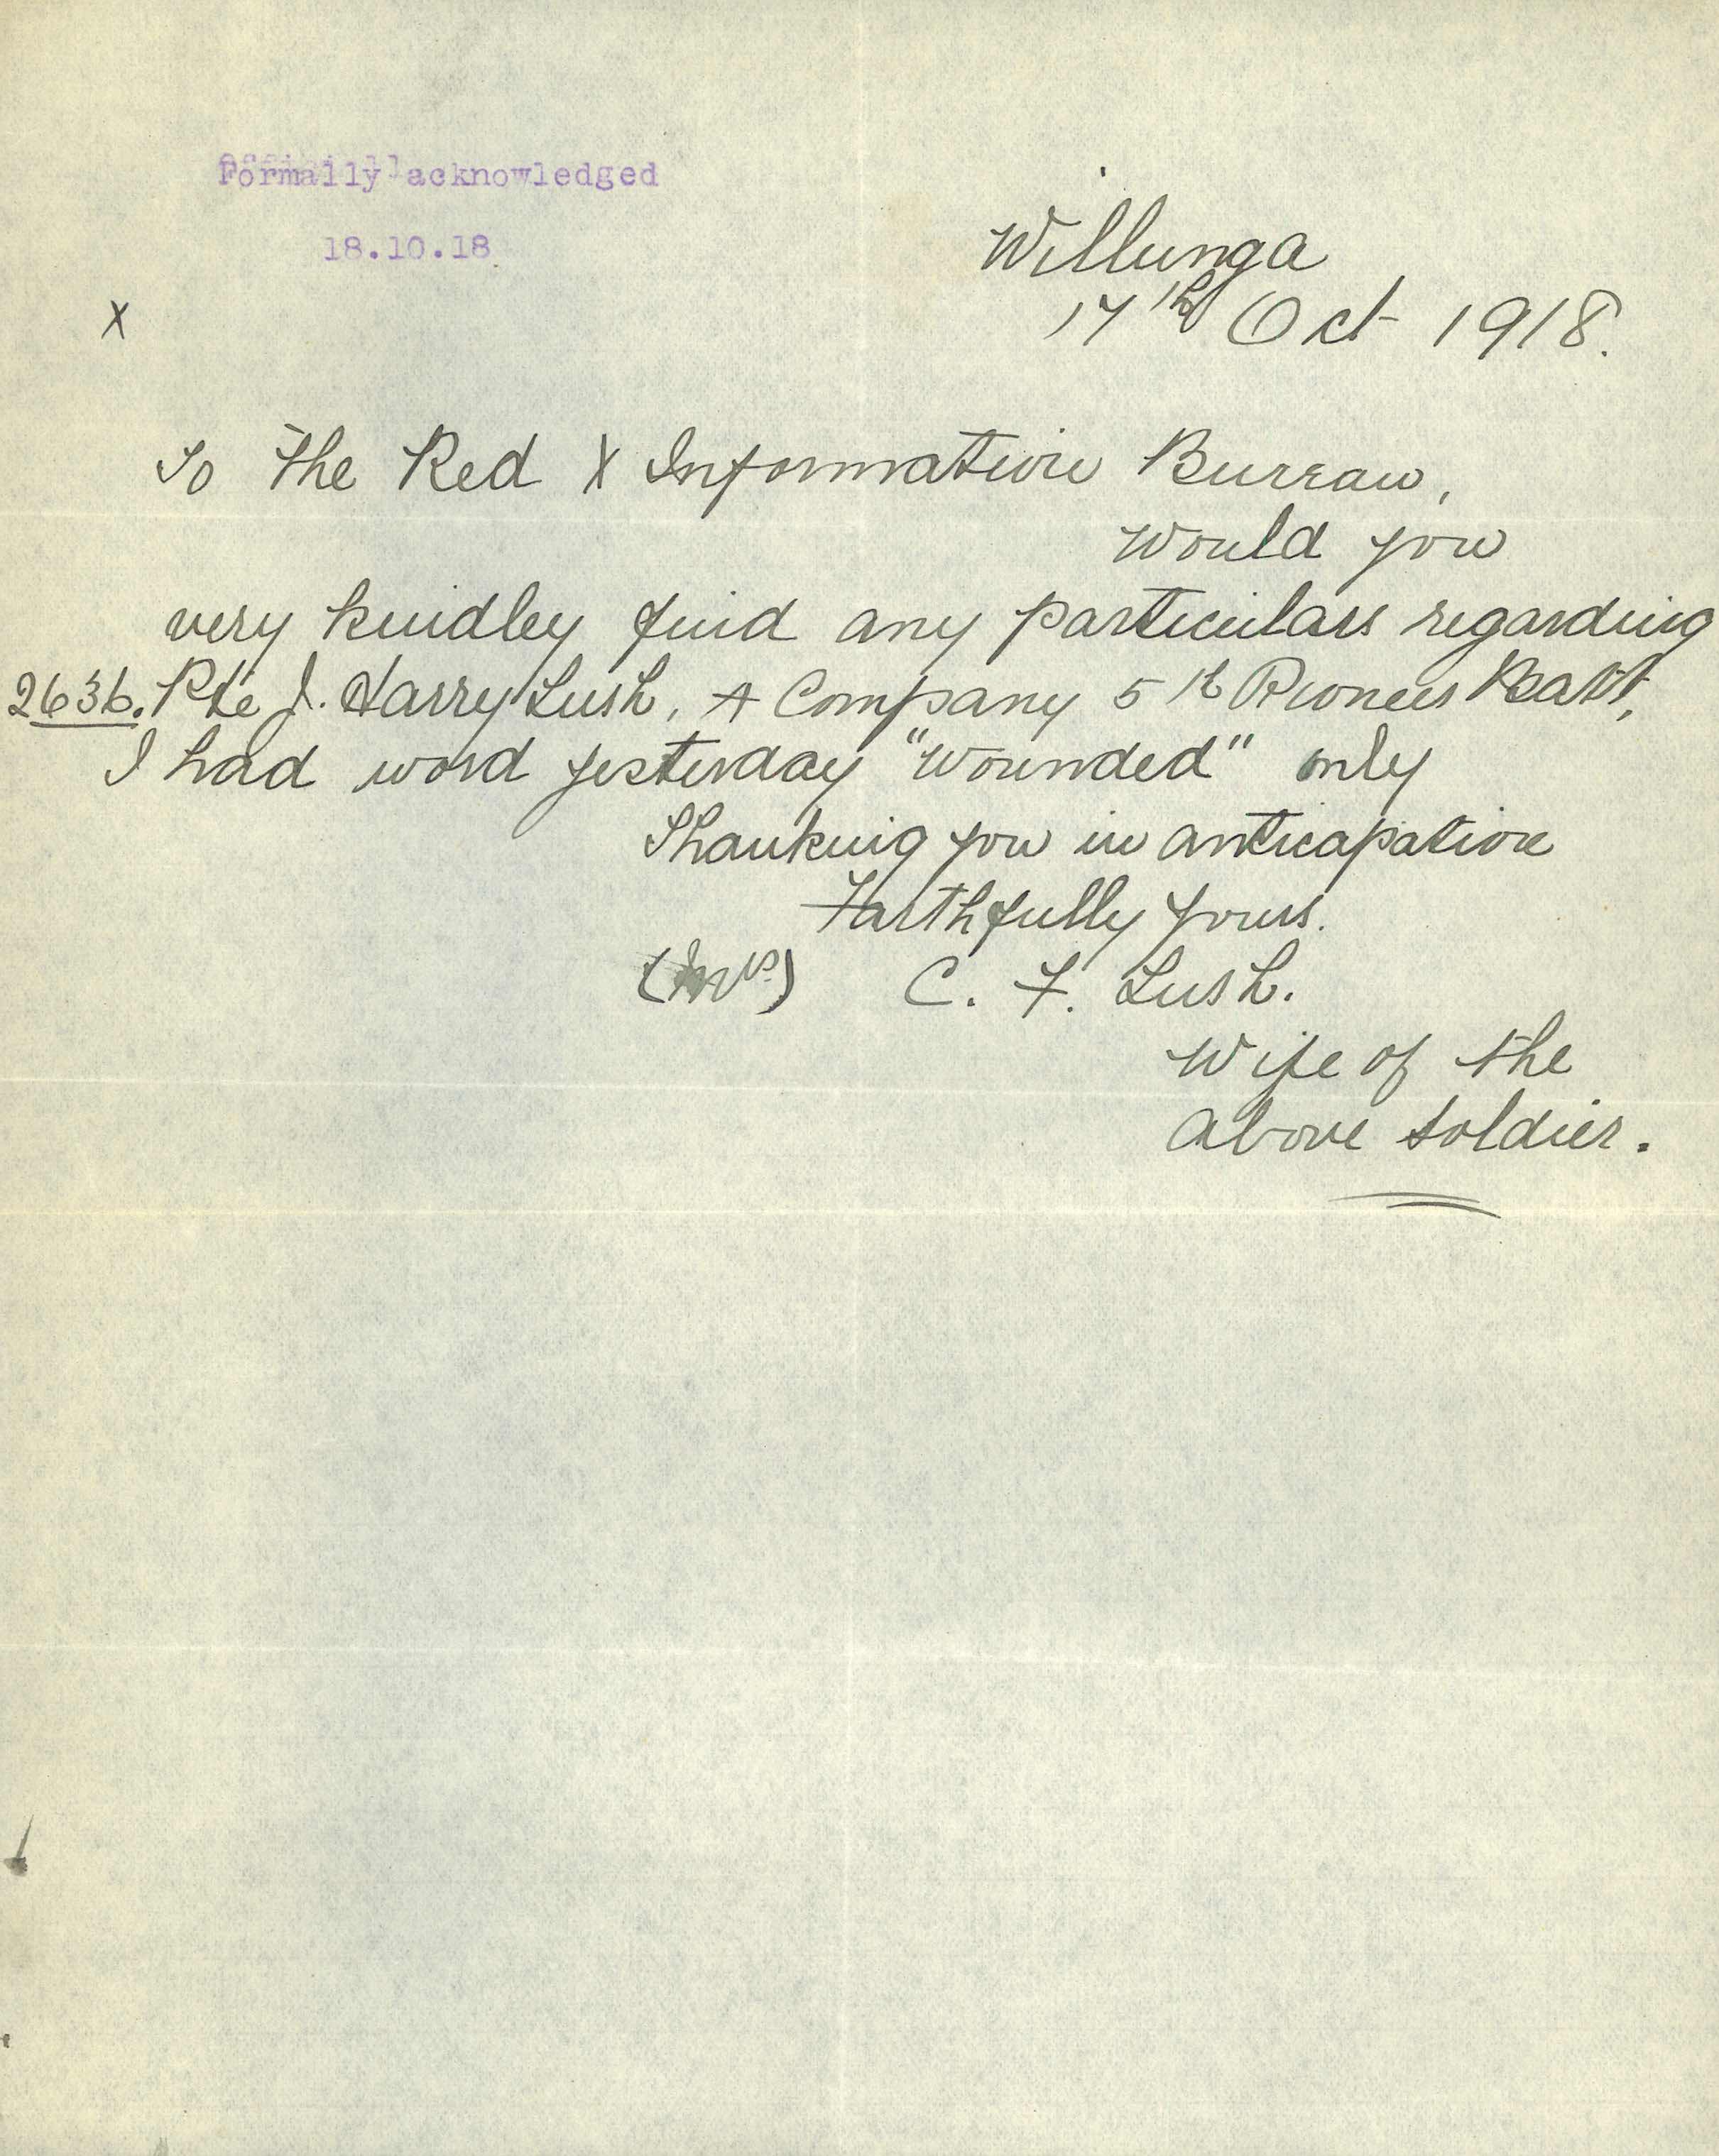 Formally acknowledged
18.10.18
Willunga
17th Oct 1918.
X
To The Red X Information Bureau,
Would you
very kindley find any particulars regarding
2636. Pte J. Harry Lush, A Company 5th Pioneers Batt,
I had word yesterday "Wounded" only
Thanking you in anticapation
Faithfully yours.
(Mrs) C. F. Lush.
Wife of the
above soldier.